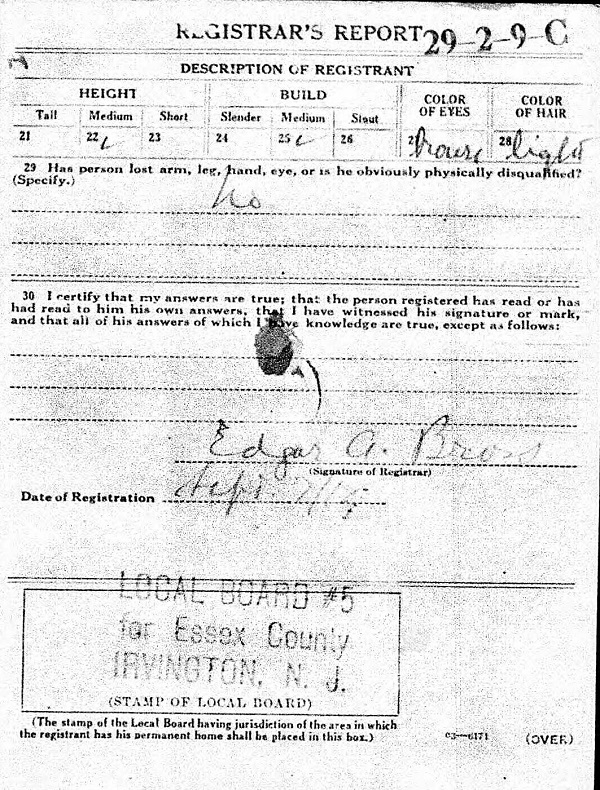 REGISTRAR'S REPORT 29-2-9-C
DESCRIPTION OF REGISTRANT
HEIGHT BUILD COLOR OF EYES COLOR OF HAIR
Tall Medium Short Slender Medium Stout
21 22 ✓ 23 24 25 ✓ 26 27 brown 28 light
29 Has person lost arm, leg, hand, eye, or is he obviously physically disqualified?
(Specify.)
No
30 I certify that my answers are true; that the person registered has read or has
had read to him his own answers, that I have witnessed his signature or mark,
and that all of his answers of which I have knowledge are true, except as follows:
Edgar A. Bross
(Signature of Registrar)
Date of Registration Sept
LOCAL BOARD #5
for Essex County
IRVINGTON, N. J.
(STAMP OF LOCAL BOARD)
(The stamp of the Local Board having jurisdiction of the area in which
the registrant has his permanent home shall be placed in this box.)
03—6171 (OVER)